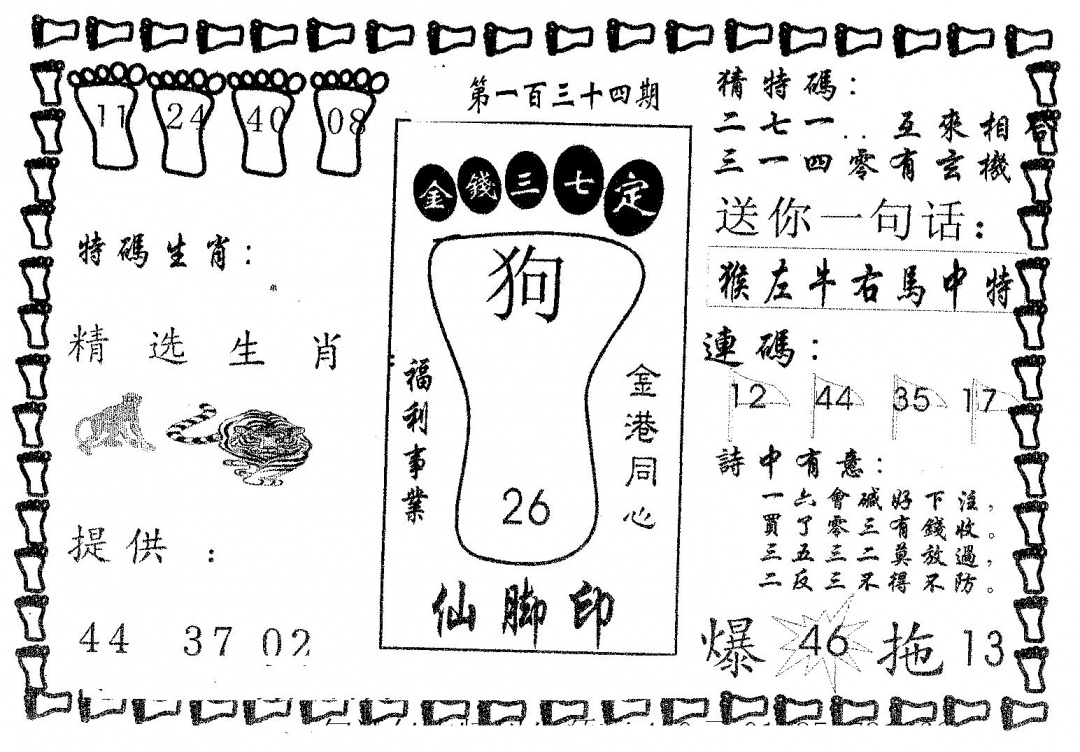 第一百三十四期
11 24 40 08
特碼生肖：
精选生肖
提供：
44 37 02
金錢三七定
狗
福利事業
金港同心
26
仙脚印
猜特碼：
二七一..互來相合
三一四零有玄機
送你一句话：
猴左牛右馬中特
連碼：
12 44 35 17
詩中有意：
一六會碱好下注，
買了零三有錢收。
三五三二莫放過，
二反三不得不防。
爆 46 拖 13